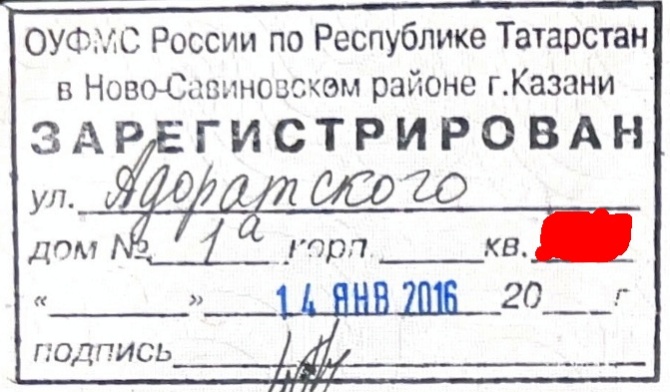 ОУФМС России по Республике Татарстан
в Ново-Савиновском районе г.Казани
ЗАРЕГИСТРИРОВАН
ул. Адоратского
дом № 1а корп. кв.
« » 14 ЯНВ 2016 20 г
подпись